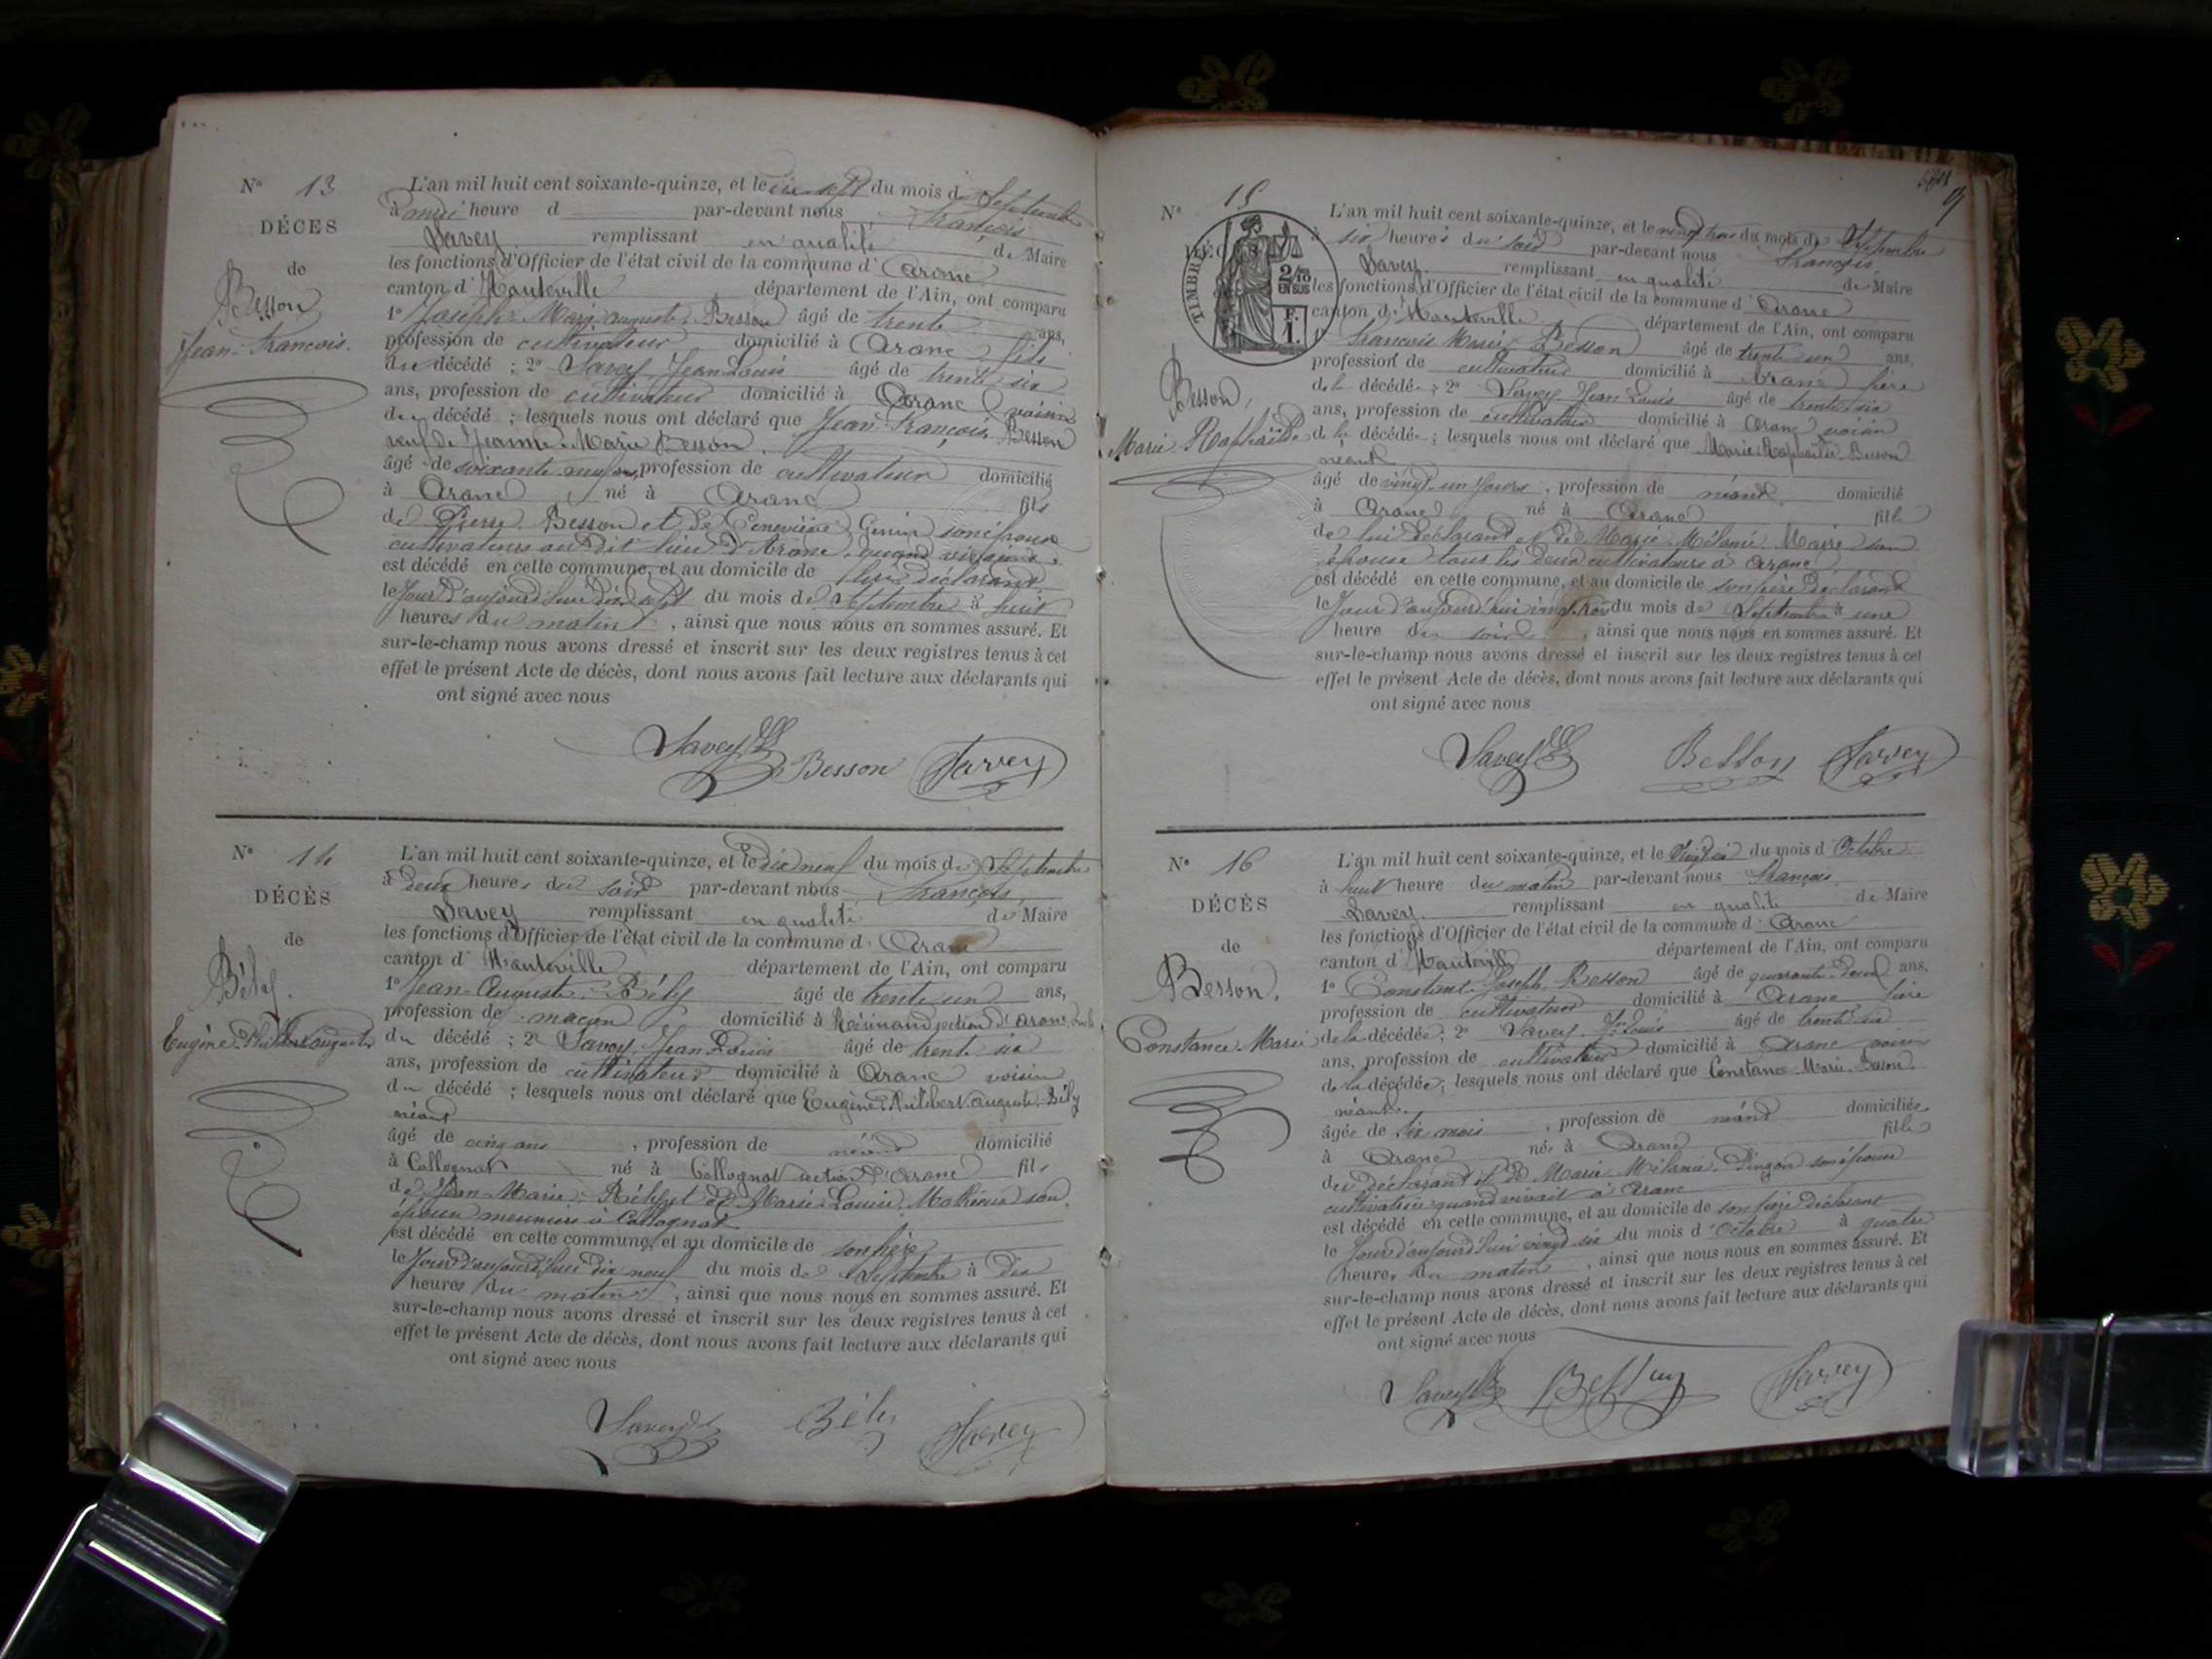 N° 13
DÉCES
de
Besson
Jean-François.
L'an mil huit cent soixante-quinze, et le dix sept du mois de Septembre
à midi heure d par-devant nous François
Savey remplissant en qualité de Maire
les fonctions d'Officier de l'état civil de la commune d' Aranc
canton d' Hauteville département de l'Ain, ont comparu
1° Joseph Marie Auguste Besson âgé de trente ans,
profession de cultivateur domicilié à Aranc fils
du décédé ; 2° Savey Jean Louis âgé de trente six
ans, profession de cultivateur domicilié à Aranc voisin
du décédé ; lesquels nous ont déclaré que Jean-François Besson
veuf de Jeanne-Marie Besson
âgé de soixante neuf ans, profession de cultivateur domicilié
à Aranc né à Aranc fils
de Pierre Besson et de Geneviève Genin son épouse
cultivateurs au dit lieu d'Aranc quand vivaient.
est décédé en cette commune, et au domicile de déclarant
le Jour d'aujourd'hui dix sept du mois de Septembre à huit
heures du matin , ainsi que nous nous en sommes assuré. Et
sur-le-champ nous avons dressé et inscrit sur les deux registres tenus à cet
effet le présent Acte de décès, dont nous avons fait lecture aux déclarants qui
ont signé avec nous
Savey Besson Savey
N° 14
DÉCÈS
de
Bély.
Eugène Philibert auguste
L'an mil huit cent soixante-quinze, et le dix neuf du mois de Septembre
à deux heures du soir par-devant nous François
Savey remplissant en qualité de Maire
les fonctions d'Officier de l'état civil de la commune d' Aranc
canton d' Hauteville département de l'Ain, ont comparu
1° Jean-Auguste Bély âgé de trente un ans,
profession de maçon domicilié à Résinand section d'Aranc
du décédé ; 2° Savey Jean Louis âgé de trente six
ans, profession de cultivateur domicilié à Aranc voisin
du décédé ; lesquels nous ont déclaré que Eugène Philibert auguste Bély
néant
âgé de cinq ans , profession de néant domicilié
à Collognat né à Collognat section d'Aranc fils
de Jean-Marie Bély et de Marie-Louise son
épouse meuniers à Collognat
est décédé en cette commune, et au domicile de son père
le Jour d'aujourd'hui dix neuf du mois de Septembre à dix
heures du matin , ainsi que nous nous en sommes assuré. Et
sur-le-champ nous avons dressé et inscrit sur les deux registres tenus à cet
effet le présent Acte de décès, dont nous avons fait lecture aux déclarants qui
ont signé avec nous
Savey Bély Savey
9
N° 15
TIMBRE
2/10
EN SUS
F.
1.
Besson,
Marie Raphaëlle
L'an mil huit cent soixante-quinze, et le vingt trois du mois de Septembre
à six heures du soir par-devant nous François
Savey remplissant en qualité de Maire
les fonctions d'Officier de l'état civil de la commune d' Aranc
canton d' Hauteville département de l'Ain, ont comparu
1° François Marie Besson âgé de trente un ans,
profession de cultivateur domicilié à Aranc père
de la décédée ; 2° Savey Jean Louis âgé de trente six
ans, profession de cultivateur domicilié à Aranc voisin
de la décédée ; lesquels nous ont déclaré que Marie Raphaëlle Besson
néant
âgé de vingt-un Jours , profession de néant domicilié
à Aranc né à Aranc fille
de lui déclarant et de Marie Mélanie Maire son
épouse tous les deux cultivateurs à Aranc
est décédé en cette commune, et au domicile de son père déclarant
le Jour d'aujourd'hui vingt trois du mois de Septembre à une
heure du soir , ainsi que nous nous en sommes assuré. Et
sur-le-champ nous avons dressé et inscrit sur les deux registres tenus à cet
effet le présent Acte de décès, dont nous avons fait lecture aux déclarants qui
ont signé avec nous
Savey Besson Savey
N° 16
DÉCÈS
de
Besson.
Constance Marie
L'an mil huit cent soixante-quinze, et le vingt six du mois d' Octobre
à huit heure du matin par-devant nous François
Savey. remplissant en qualité de Maire
les fonctions d'Officier de l'état civil de la commune d' Aranc
canton d' Hauteville département de l'Ain, ont comparu
1° Constant Joseph Besson âgé de quarante-deux ans,
profession de cultivateur domicilié à Aranc père
de la décédée ; 2° Savey Jn Louis âgé de trente six
ans, profession de cultivateur domicilié à Aranc voisin
de la décédée ; lesquels nous ont déclaré que Constance Marie Besson
néant
âgée de six mois , profession de néant domiciliée
à Aranc née à Aranc fille
du déclarant et de Marie Mélanie Pingon son épouse
cultivatrice quand vivait à Aranc
est décédé en cette commune, et au domicile de son père déclarant
le Jour d'aujourd'hui vingt six du mois d' Octobre à quatre
heures du matin , ainsi que nous nous en sommes assuré. Et
sur-le-champ nous avons dressé et inscrit sur les deux registres tenus à cet
effet le présent Acte de décès, dont nous avons fait lecture aux déclarants qui
ont signé avec nous
Savey Besson Savey